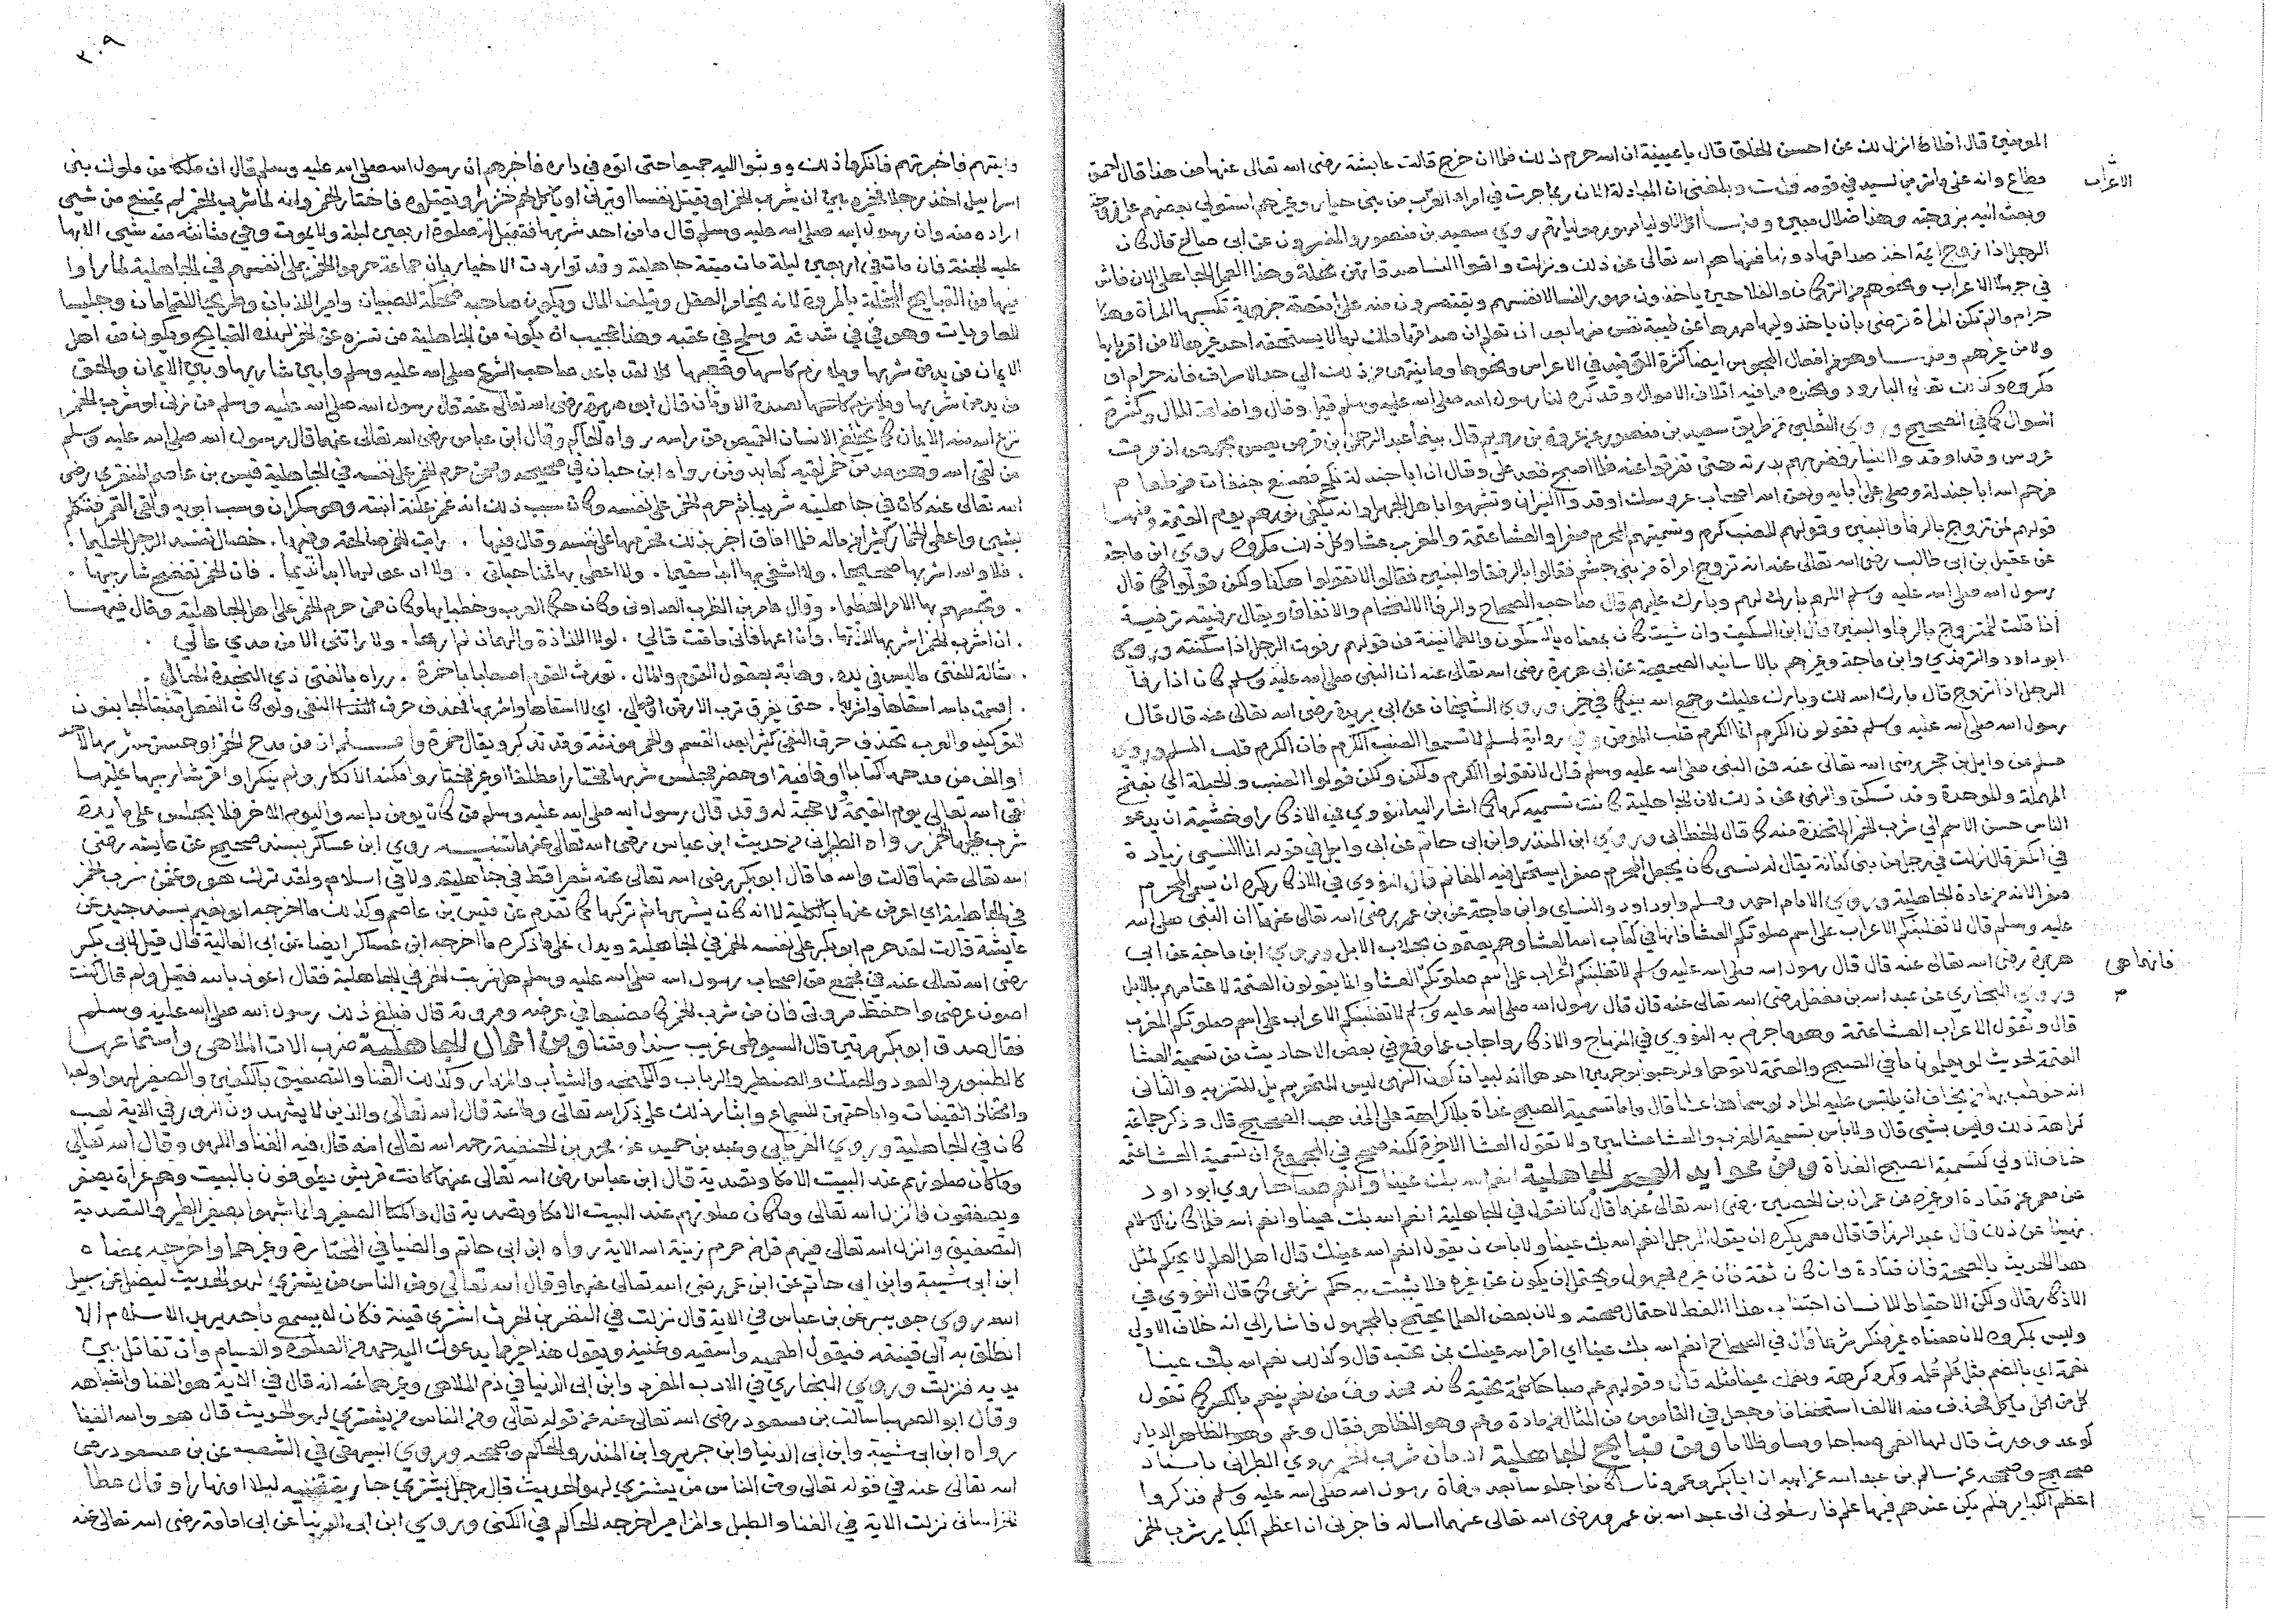 المومنين قال افلا انزل لك عن احسن الخلق قال يا عيينة ان الله حرم ذلك فلما ان خرج قالت عايشة رضى الله تعالى عنها من هذا قال احمق
مطاع وانه على ما ترين لسيد في قومه قلت وبلغنى ان المبادلة الان ربما جرت في امراء العرب من بنى حيار وغيرهم
وبعث اليه بزوجته وهذا ضلال مبين ومنها اكل الاوليا مهور مولياتهم روى سعيد بن منصور والمفسرون عن ابى صالح قال كان
الرجل اذا زوج ايمه اخذ صداقها دونها فنهاهم الله تعالى عن ذلك ونزلت واتوا النسا صدقاتهن نحلة وهذا العمل الجاهلى الان فاش
في جهلة الاعراب ونحوهم من التركمان والفلاحين ياخذون مهور النسا لانفسهم ويقتصرون منه على تكسبها المراة وهذا
حرام وان لم تكن المراة ترضى بان ياخذ وليها مهرها عن طيبة نفس منها بعد ان تعلم ان صداقها ملك لها لا يستحقه احد غيرها لا من اقربايها
ولا من غيرهم ومنها وهو من افعال المجوس ايضا كثرة الوقيد في الاعراس ونحوها وما ينتهى من ذلك الى حد الاسراف فانه حرام او
مكروه وكذلك البارود ونحوه مما فيه اتلاف الاموال وقد كره لنا رسول الله صلى الله عليه وسلم قيل وقال واضاعة المال وكثرة
السوال كما في الصحيح وروى الثعلبى من طريق سعيد بن منصور عن عروة بن رويم قال بينما عبد الرحمن بن قرص يعس بحمص اذ مرت
عروس وقد اوقدوا النيار فضربهم بدرته حتى تفرقوا عنه فلما اصبح قعد على وقال ان ابا جندلة نكح فصنع جفنات من طعام
فرحم الله ابا جندلة وصلى على ابايه ولعن الله اصحاب عروسك اوقدوا النيران وتشبهوا باهل الجهل وانه يطفى نورهم يوم القيمة ومنها
قولهم لمن تزوج بالرفا والبنين وقولهم للعنب كرم وتسميتهم المحرم صفرا والعشا عتمة والمغرب عشا وكل ذلك مكروه روى ابن ماجة
عن عقيل بن ابى طالب رضى الله تعالى عنه انه تزوج امراة من بنى جشم فقالوا بالرفا والبنين فقال لا تقولوا هكذا ولكن قولوا كما قال
رسول الله صلى الله عليه وسلم اللهم بارك لهم وبارك عليهم قال صاحب الصحاح والرفا الالتحام والاتفاق ويقال رفيته ترفية
اذا قلت للمتزوج بالرفا والبنين قال ابن السكيت وان شيت كان معناه بالسكون والطمانينة من قولهم رفوت الرجل اذا سكنته وروى
ابو داود والترمذي وابن ماجة وغيرهم بالاسانيد الصحيحة عن ابى هريرة رضى الله تعالى عنه ان النبى صلى الله عليه وسلم كان اذا رفا
الرجل اذا تزوج قال بارك الله لك وبارك عليك وجمع الله بينكما في خير وروى الشيخان عن ابى هريرة رضى الله تعالى عنه قال قال
رسول الله صلى الله عليه وسلم تقولون الكرم انما الكرم قلب المومن وفي رواية لمسلم لا تسموا العنب الكرم فان الكرم قلب المسلم وروى
مسلم عن وايل بن حجر رضى الله تعالى عنه عن النبى صلى الله عليه وسلم قال لا تقولوا الكرم ولكن قولوا العنب والحبلة اى بفتح
المهملة والموحدة وقد تسكن والنهى عن ذلك لان الجاهلية كانت تسميه كرما كما اشار اليه النووي في الاذكار او خشية ان يدعو
الناس حسن الاسم الى شرب الخمر المتخذة منه كما قال الخطابى وروى ابن المنذر وابن ابى حاتم عن ابى وايل في قوله انما النسى زيادة
في الكفر قال نزلت في رجل من بنى كنانة يقال له نسى كان يجعل المحرم صفرا يستحل فيه المغانم قال النووي في الاذكار يكره ان يسمى المحرم
صفرا لانه من عادة الجاهلية وروى الامام احمد ومسلم وابو داود والنساى وابن ماجة عن ابن عمر رضى الله تعالى عنهما ان النبى صلى الله
عليه وسلم قال لا تغلبنكم الاعراب على اسم صلوتكم العشا فانها في كتاب الله العشا وهم يعتمون بحلاب الابل وروى ابن ماجة عن ابى
هريرة رضى الله تعالى عنه قال قال رسول الله صلى الله عليه وسلم لا تغلبنكم الاعراب على اسم صلوتكم العشا وانما يقولون العتمة لاعتامهم بالابل
وروى البخاري عن عبد الله بن مغفل رضى الله تعالى عنه قال قال رسول الله صلى الله عليه وسلم لا تغلبنكم الاعراب على اسم صلوتكم المغرب
قال وتقول الاعراب العشا عتمة وهو ما جزم به النووي في المنهاج والاذكار واجاب عما وقع في بعض الاحاديث من تسمية العشا
العتمة لحديث لو يعلمون ما في الصبح والعتمة لاتوهما ولو حبوا بوجهين احدهما انه لبيان كون النهى ليس للتحريم بل للتنزيه والثانى
انه خوطب بها من يخاف ان يلتبس عليه المراد لو سماها عشا قال واما تسمية الصبح غداة فلا كراهة على المذهب الصحيح قال وذكر جماعة
كراهة ذلك وليس بشى قال ولا باس بتسمية المغرب والعشا عشاين ولا تقول العشا الاخرة لكنه صحح في المجموع ان تسمية العشا عتمة
خلاف الاولى كتسمية الصبح الغداة ومن عوايد الجاهلية انعم الله بك عينا وانعم صباحا روى ابو داود
عن معمر عن قتادة او غيره عن عمران بن الحصين رضى الله تعالى عنهما قال كنا نقول في الجاهلية انعم الله بك عينا وانعم الله فلما كان الاسلام
نهينا عن ذلك قال عبد الرزاق قال معمر يكره ان يقول الرجل انعم الله بك عينا ولا باس ان يقول انعم الله عينك قال اهل العلم لا يحكم لمثل
هذا الحديث بالصحة فان قتادة وان كان ثقة فان غيره مجهول ويحتمل ان يكون عن غيره فلا يثبت به حكم شرعى كما قال النووي في
الاذكار قال ولكن الاحتياط للانسان اجتناب هذا اللفظ لاحتمال صحته ولان بعض العلما يحتج بالمجهول فاشار الى انه خلاف الاولى
وليس بمكروه لان معناه غير منكر شرعا قال في الصحاح انعم الله بك عينا اى اقر الله عينك بمن تحبه قال وكذلك نعم الله بك عينا
نعمة اى بالضم مثل وكره كرهة ونعمك عينا مثله قال وقولهم عم صباحا كلمة تحية كانه محذوف من نعم ينعم بالكسر كما تقول
كل من اكل ياكل فحذف منه الالف استخفافا وجعل في القاموس من المثال من مادة وعم وهو الظاهر فقال وعم الديار
كوعد وورث قال لها انعمى صباحا ومسا وظلاما ومن قبايح الجاهلية ادمان شرب الخمر روى الطبرانى باسناد
صحيح وصححه عن سالم بن عبد الله عن ابيه ان ابا بكر وعمر وناسا كانوا جلوسا بعد وفاة رسول الله صلى الله عليه وسلم فذكروا
اعظم الكباير فلم يكن عندهم فيها علم فارسلونى الى عبد الله بن عمرو رضى الله تعالى عنهما اساله فاخبرنى ان اعظم الكباير شرب الخمر
الاعراب
فانها هى
٣٠٩
واتيتهم فاخبرتهم فانكروا ذلك ووثبوا اليه جميعا حتى اتوه في داره فاخبرهم ان رسول الله صلى الله عليه وسلم قال ان ملكا من ملوك بنى
اسراييل اخذ رجلا فخيره بين ان يشرب الخمر او يقتل نفسا او يزنى او ياكل لحم خنزير او يقتلوه فاختار الخمر وانه لما شرب الخمر لم يمتنع من شيى
اراده منه وان رسول الله صلى الله عليه وسلم قال ما من احد شربها فتقبل له صلوة اربعين ليلة ولا يموت وفي مثانته منه شيى الا بها
عليه الجنة فان مات في اربعين ليلة مات ميتة جاهلية وقد تواردت الاخبار بان جماعة حرموا الخمر على انفسهم في الجاهلية لما راوا
فيها من القبايح المخلة بالمروة لانه يخامر العقل ويتلف المال ويكون صاحبه ضحكة للصبيان وطريحا للقمامات وجليسا
للعاويات وهو في شدقه وسلح في عقبه وهذا عجيب ان يكون من الجاهلية من تنزه عن الخمر لهذه القبايح ويكون من اهل
الايمان من يدمن شربها ويلازم كاسها كلا لقد باعد صاحب الشرع صلى الله عليه وسلم وابين شاربها وبين الايمان والحق
من يدمن شربها ويلازم قال ابو هريرة رضى الله تعالى عنه قال رسول الله صلى الله عليه وسلم من زنى او شرب الخمر
نزع الله منه الايمان كما يخلع الانسان القميص من راسه رواه الحاكم وقال ابن عباس رضى الله تعالى عنهما قال رسول الله صلى الله عليه وسلم
من لقى الله وهو مدمن خمر لقيه كعابد وثن رواه ابن حبان في صحيحه وممن حرم الخمر على نفسه في الجاهلية قيس بن عاصم المنقري رضى
الله تعالى عنه كان في جاهليته شريبا ثم حرم الخمر على نفسه وكان سبب ذلك انه غمز عكنة ابنته وهو سكران وسب ابويه وراى القمر فتكلم
بشيى واعطى الخمار كثيرا من ماله فلما افاق اخبر بذلك فحرمها على نفسه وقال فيها . رايت الخمر صالحة وفيها . خصال تفسد الرجل الحليما .
. فلا والله اشربها صحيحا . ولا اشفى بها ابدا سقيما . ولا اعطى بها ثمنا حياتى . ولا ادعو لها ابدا نديما . فان الخمر تفضح شاربيها .
. وتجشمهم بها الامر العظيما . وقال عامر بن الظرب العدوانى وكان حكم العرب وخطيبها وكان ممن حرم الخمر على اهل الجاهلية وقال فيها
. ان اشرب الخمر اشربها للذتها . وان ادعها فانى ماقت قالي . لولا اللذاذة والقيان لم ارها . ولا راتنى الا من مدى عالي .
. سالة للفتى ما ليس في يده . وذهابة بعقول القوم والمال . تورث القوم اضغانا بلا احنة . مزراه بالفتى ذي النجدة الحالي .
. اقسمت بالله اسقاها واشربها . حتى يفرق ترب الارض اوصالي . اي لا اسقاها واشربها فحذف حرف النفى
التوكيد والعرب تحذف حرف النفى كثيرا بعد القسم والخمر مونثة وقد تذكر ويقال خمرة واعلم ان من مدح الخمر او حسن شربها لاحد
او الف من مدحها كتابا او قافية او حضر مجلس شربها مختارا مطلقا او غير مختار وامكنه الانكار ولم ينكر او اقر شاربيها عليها
لقى الله تعالى يوم القيمة لا حجة له وقد قال رسول الله صلى الله عليه وسلم من كان يومن بالله واليوم الاخر فلا يجلس على مايدة
شرب عليها الخمر رواه الطبرانى من حديث ابن عباس رضى الله تعالى عنهما تنبيه روى ابن عساكر بسند صحيح عن عايشة رضى
الله تعالى عنها قالت والله ما قال ابو بكر رضى الله تعالى عنه شعرا قط في جاهلية ولا في اسلام ولقد ترك هو وعثمن شرب الخمر
في الجاهلية اي اعرض عنها بالكلية لا انه كان يشربها ثم تركها كما تقدم عن قيس بن عاصم وكذلك ما اخرجه ابو نعيم بسند جيد عن
عايشة قالت لقد حرم ابو بكر على نفسه الخمر في الجاهلية ويدل على ما ذكره ما اخرجه ابن عساكر ايضا عن ابى العالية قال قيل لابى بكر
رضى الله تعالى عنه في مجمع من اصحاب رسول الله صلى الله عليه وسلم هل شربت الخمر في الجاهلية فقال اعوذ بالله فقيل ولم قال كنت
اصون عرضى واحفظ مروتى فان من شرب الخمر كان مضيعا في عرضه ومروته قال فبلغ ذلك رسول الله صلى الله عليه وسلم
فقال صدق ابو بكر مرتين قال السيوطى غريب سندا ومتنا ومن اعمال الجاهلية ضرب الات الملاهى واستماعها
كالطنبور والعود والصنطير والرباب والكمنجه والشبابة والمزمار وكذلك الغنا والتصفيق بالكفين والصفير لهوا ولعبا
واتخاذ القينات واباحتهن للسماع وايثار ذلك على ذكر الله تعالى وطاعته قال الله تعالى والذين لا يشهدون الزور في الاية لعب
كان في الجاهلية وروى الفريابى وعبد بن حميد عن محمد بن الحنفية رحمه الله تعالى انه قال فيه الغنا واللهو وقال الله تعالى
وما كان صلوتهم عند البيت الا مكا وتصدية قال ابن عباس رضى الله تعالى عنهما كانت قريش يطوفون بالبيت وهم عراة يصفر
ويصفقون فانزل الله تعالى وما كان صلوتهم عند البيت الا مكا وتصدية قال والمكا الصفير وانما شبهوا بصفير الطير والتصدية
التصفيق وانزل الله تعالى فيهم قل من حرم زينة الله الاية رواه ابن ابى حاتم والضيا في المختارة وغيرهما واخرجه بمعناه
ابن ابى شيبة وابن ابى حاتم عن ابن عمر رضى الله تعالى عنهما وقال الله تعالى ومن الناس من يشتري لهو الحديث ليضل عن سبيل
الله روى جويبر عن ابن عباس في الاية قال نزلت في النضر بن الحارث اشترى قينة فكان لا يسمع باحد يريد الاسلام الا
انطلق به الى قينته فيقول اطعميه واسقيه وغنيه ويقول هذا خير مما يدعوك اليه محمد من الصلوة والصيام وان تقاتل بين
يديه فنزلت وروى البخاري في الادب المفرد وابن ابى الدنيا في ذم الملاهى وغيرهما عنه انه قال في الاية هو الغنا واشباهه
وقال ابو الصهبا سالت بن مسعود رضى الله تعالى عنه عن قوله تعالى ومن الناس من يشتري لهو الحديث قال هو والله الغنا
رواه ابن ابى شيبة وابن ابى الدنيا وابن جرير وابن المنذر والحاكم وصححه وروى البيهقى في الشعب عن بن مسعود رضى
الله تعالى عنه في قوله تعالى ومن الناس من يشتري لهو الحديث قال رجل يشتري جارية تغنيه ليلا او نهارا وقال عطا
الخراسانى نزلت الاية في الغنا والطبل والمزامير اخرجه الحاكم في الكنى وروى ابن ابى الدنيا عن ابى امامة رضى الله تعالى عنه